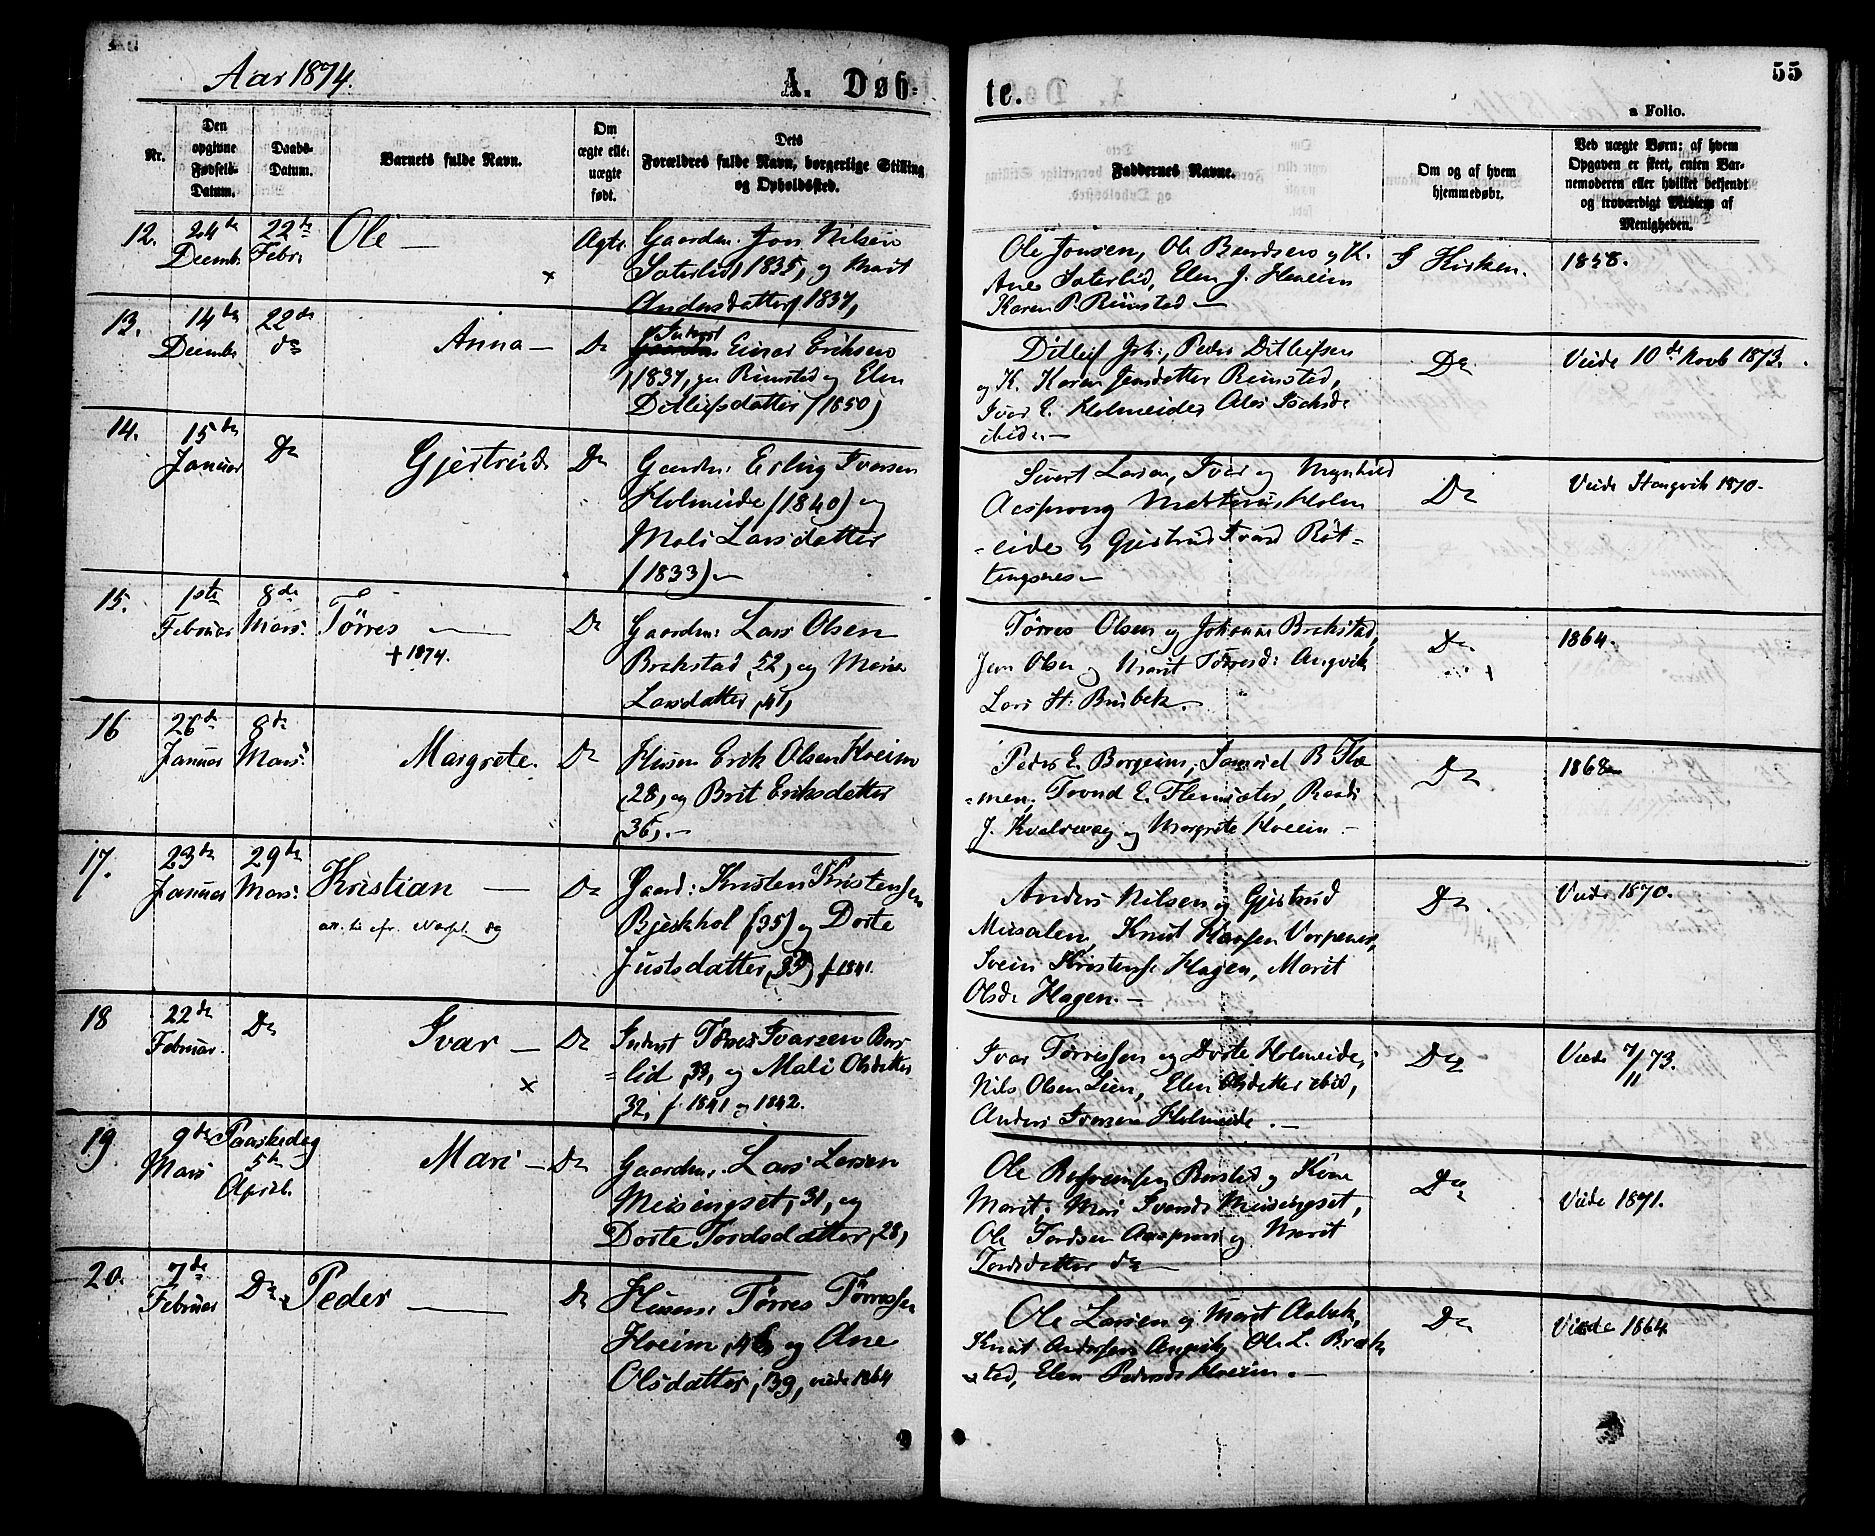 Aar 1874.
A. Døb-
te.
55
a Folio.
Nr.
Den
opgivne
Fødsels-
Datum.
Daabs-
Datum.
Barnets fulde Navn.
Om
ægte eller
uægte
født.
Dets
Forældres fulde Navn, borgerlige Stilling
og Opholdssted.
Faddernes Navne.
Om og af hvem
hjemmedøbt.
Ved uægte Børn; af hvem
Opgaven er skeet, enten Bar-
nemoderen eller hvilket bekjendt
og troværdigt Medlem af
Menigheden.
12.
24de
Decembr
22de
Febr:
Ole —
Ægte
Gaardm. Jon Nilsen
Sæterlid, 1835, og Marit
Andersdatter, 1837,
Ole Jonsen, Ole Baardsen og K.
Ane Sæterlid, Elen J. Hoeim
Karen P. Rimsted —
I Kirken.
1858.
13.
14de
Decembr
22de
do
Anna —
Do
Inderst
Einar Eriksen
1837, Rimsted og Elen
Ditlefsdatter (1850)
Ditlef Joh:, Peder Ditlefsen
og K. Karen Jensdatter Rimsted,
Iver E. Holmeide
ibid. —
Do
Viede 10de Novb 1873.
14.
15de
Januar
Do
Gjertrud
Do
Gaardm: Erling Iversen
Holmeide (1840) og
Mali Larsdatter
(1833) —
Sivert Larsen, Iver og Magnhild
Aasprong Holm
-eide og Gjertrud Røt-
tingsnes —
Do
Viede Stangvik 1870.
15.
1ste
Februar
8de
Mars:
Tørres —
† 1874.
Do
Gaardm: Lars Olsen
Brekstad, 52, og Marie
Larsdatter, 41,
Tørres Olsen og Johanna Brekstad,
Jon Olsen og Marit Tørresd: Angvik
Lars H: Busbek.
Do
1864.
16
26de
Januar
8de
Mars:
Margrete.
Do
Husm Erik Olsen Hoeim
28, og Brit Eriksdatter
36, —
Peder E. Borgeim, B Flæ
-men, Trond E. Flemsæter, Randi
J. Kvalvaag og Margrete Hoeim —
Do
1868
17.
23de
Januar
29de
Mars:
Kristian —
Do
Gaard: Kristen Kristensen
Bjerkhol (35) og Dorte
Justsdatter, 33, f 1841.
Anders Nilsen og Gjertrud
Meisalen, Knut Hansen Vorpenes,
Svein Kristens: Hagen, Marit
Olsd: Hagen. —
Do
Viede 1870.
18
22de
Februar.
Do
Ivar —
Do
Inderst Tørres Ivarsen Berg
-lid, 33, og Mali Olsdatter
32, f. 1841 og 1842.
Ivar Tørressen og Dorte Holmeide,
Nils Olsen Lien, Elen Olsdatter ibid,
Anders Iversen Holmeide. —
Do
Viede 7/11 73.
19
9de
Mars
Paaskedag
5te
April.
Mari —
Do
Gaardm: Lars Larsen
Meisingset, 31, og
Dorte Tordsdatter, 28,
Ole Rimsted og Kone
Marit; Mari Ivarsd: Meisingset,
Ole Tordsen og Marit
Tordsdatter do —
Do
Viede 1871.
20.
7de
Februar
Do
Peder —
Do
Husm: Tørres Tørressen
Hoeim, 46 og Ane
Olsdatter, 39, viede 1864
Ole Larsen og Marit Aabak,
Knut Andersen Angvik, Ole L. Bræk
-sted, Elen Pedersd Hoeim. —
Do
Viede 1864